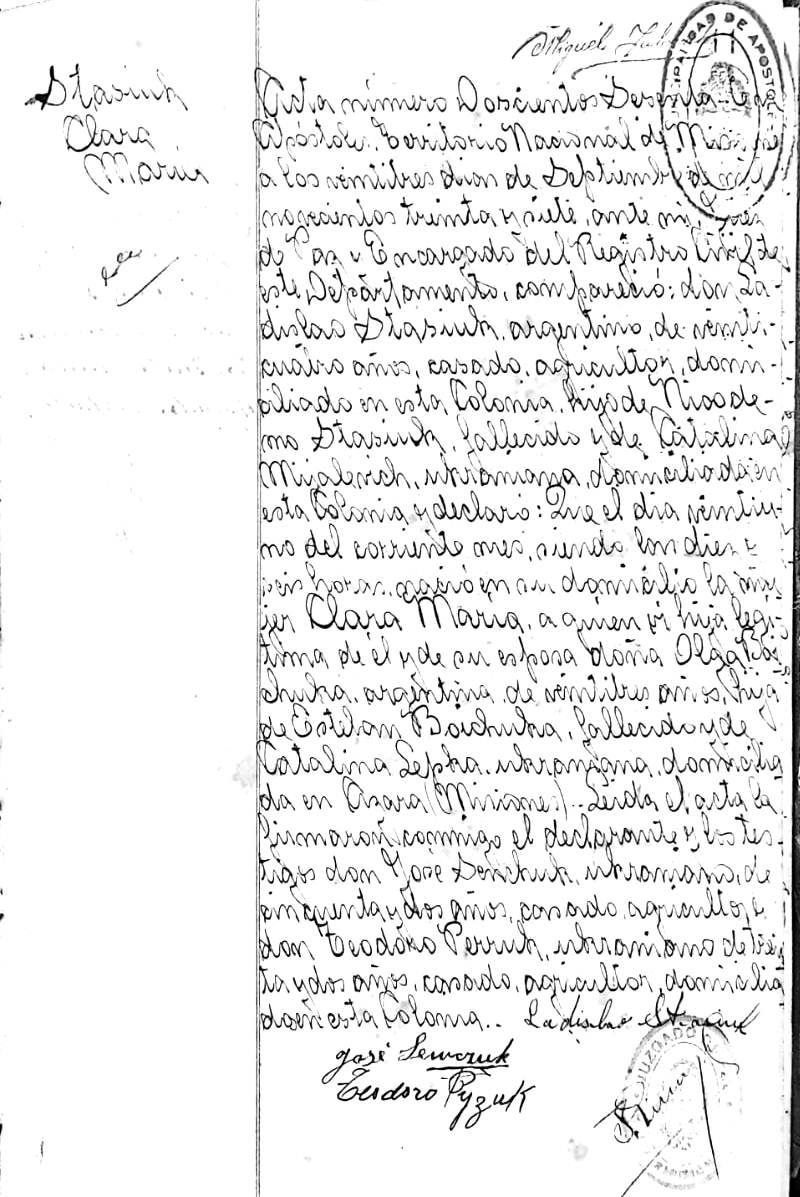 Miguel
Stasiuk
Clara
María
Acta número Doscientos Sesenta. En
Apóstoles, Territorio Nacional de Misiones
a los veintitres dias de Septiembre de mil
novecientos treinta y siete, ante mi, Juez
de Paz y Encargado del Registro Civil de
este Departamento, compareció: don La-
dislao Stasiuk, argentino, de veinti-
cuatro años, casado, agricultor, domi-
ciliado en esta Colonia, hijo de Nicode-
mo Stasiuk, fallecido y de Catalina
Migalevich, ukraniana, domiciliada en
esta Colonia y declaró: Que el dia veintiu-
no del corriente mes, siendo las diez y
seis horas, nació en su domicilio la mu-
jer Clara Maria, a quien vi hija legi-
tima de él y de su esposa doña Olga Boi-
chuka, argentina, de veintitres años, hija
de Esteban Boichuka, fallecido y de
Catalina Sepka, ukraniana, domicilia
da en Azara (Misiones).. Leida el acta la
firmaron conmigo el declarante y los tes-
tigos don José Senchuk, ukraniano, de
cincuenta y dos años, casado, agricultor, y
don Teodoro Perruk, ukraniano de trein
ta y dos años, casado, agricultor, domicilia
do en esta Colonia.. Ladislao Stasiuk
José Lewczuk
Teodoro Pyzuk
JUZGADO